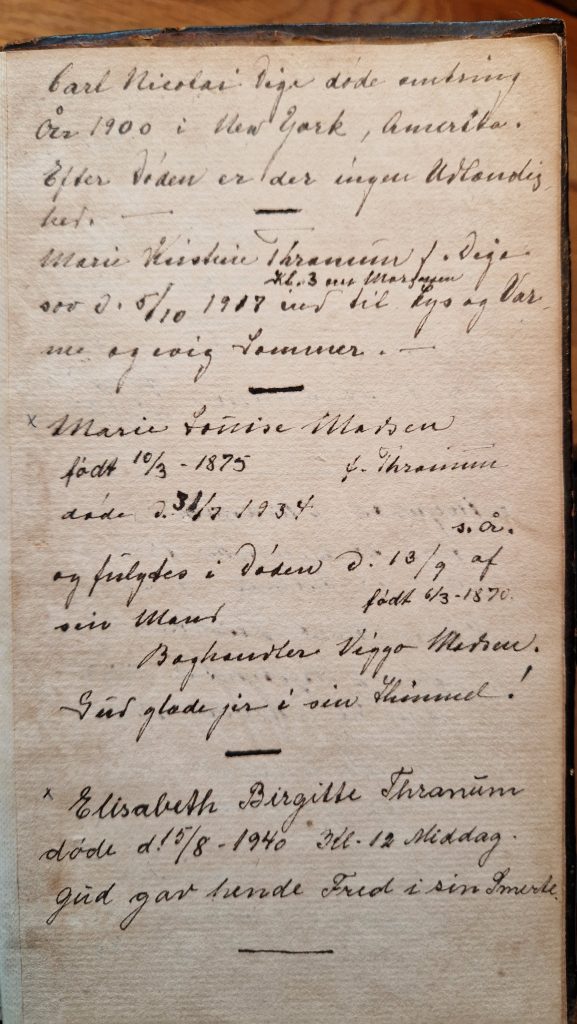 Carl Nicolai Dige døde omtring
År 1900 i New York, Amerika.
Efter Døden er der ingen Udlændig-
hed. —
Marie Kristine Thranum f. Dige
Kl. 3 om Morgenen
sov d. 5/10 1917 ind til Lys og Var-
me og evig Sommer. —
x Marie Louise Madsen
født 10/3 - 1875 f. Thranum
døde d. 31/7 1934
s. å.
og fulgtes i Døden d. 13/9 af
sin Mand født 6/3 - 1870.
Boghandler Viggo Madsen.
Gud glæde jer i sin Himmel!
x Elisabeth Birgitte Thranum
døde d. 15/8 - 1940 Kl. 12 Middag.
Gud gav hende Fred i sin Smerte.